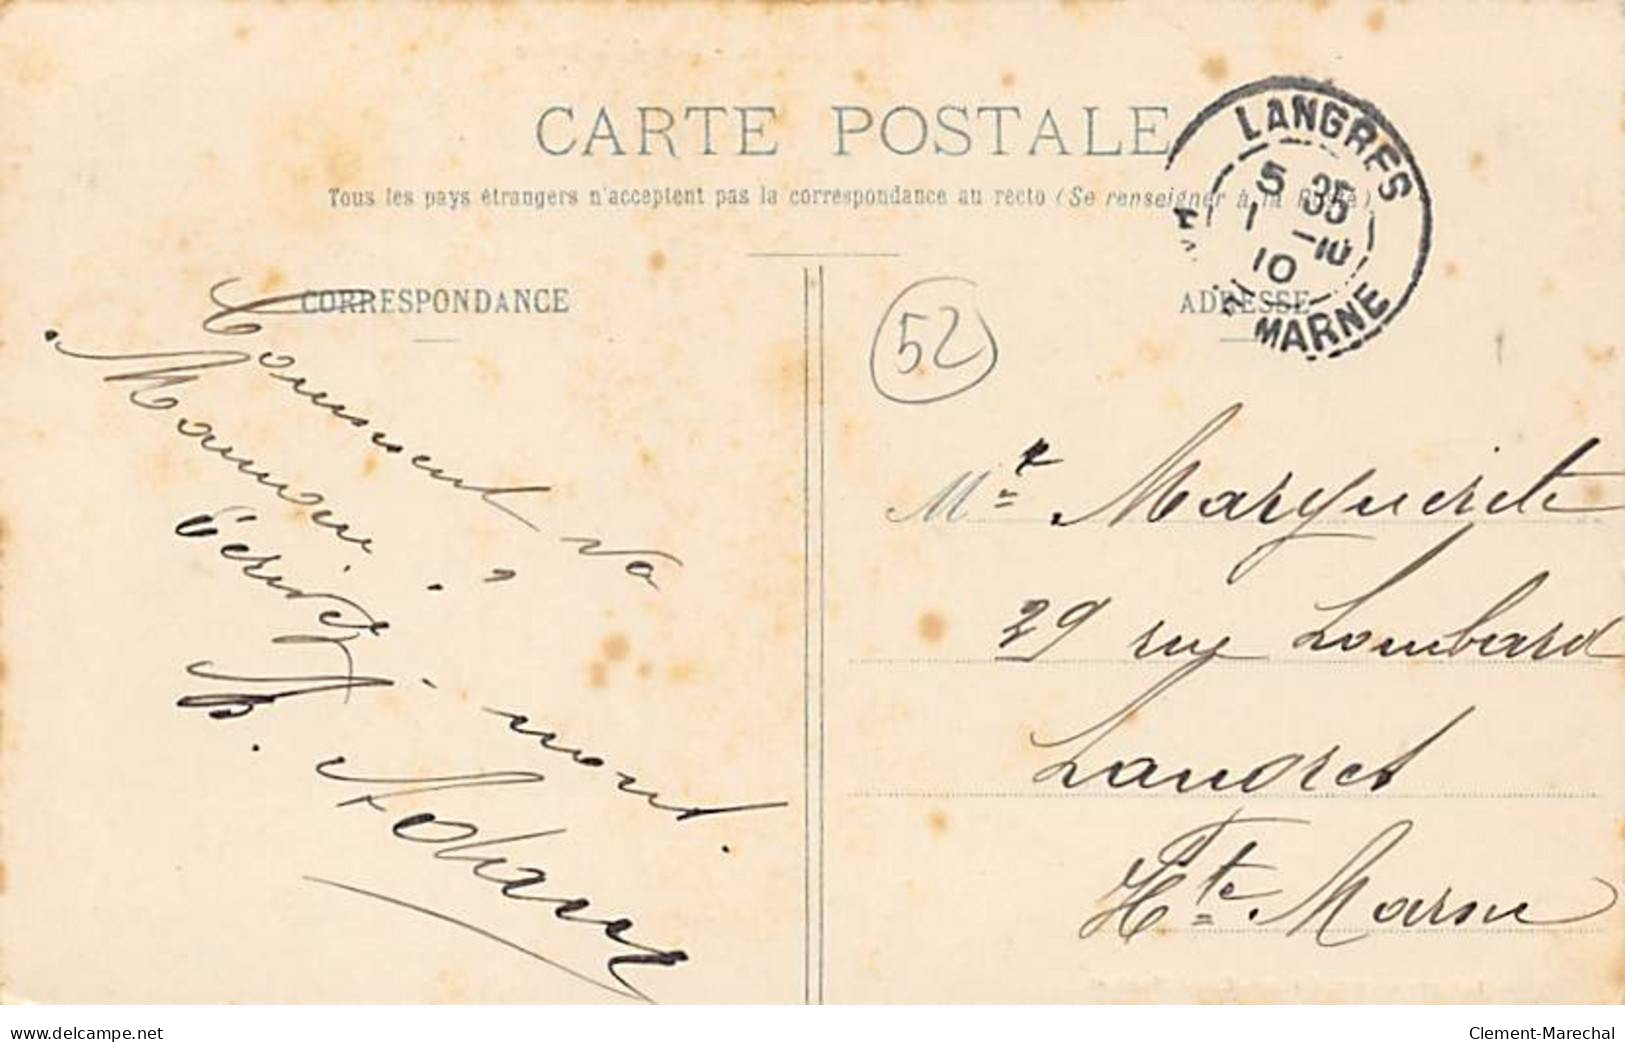 CARTE POSTALE
Tous les pays étrangers n'acceptent pas la correspondance au recto (Se renseigner à la Poste)
CORRESPONDANCE
Comment va
Maman,
Ecrivez-moi
ADRESSE
LANGRES
5 35
1 -10
10
MARNE
52
Marguerite
29 rue Lombard
Landret
Hte Marne
www.delcampe.net
Clement-Marechal